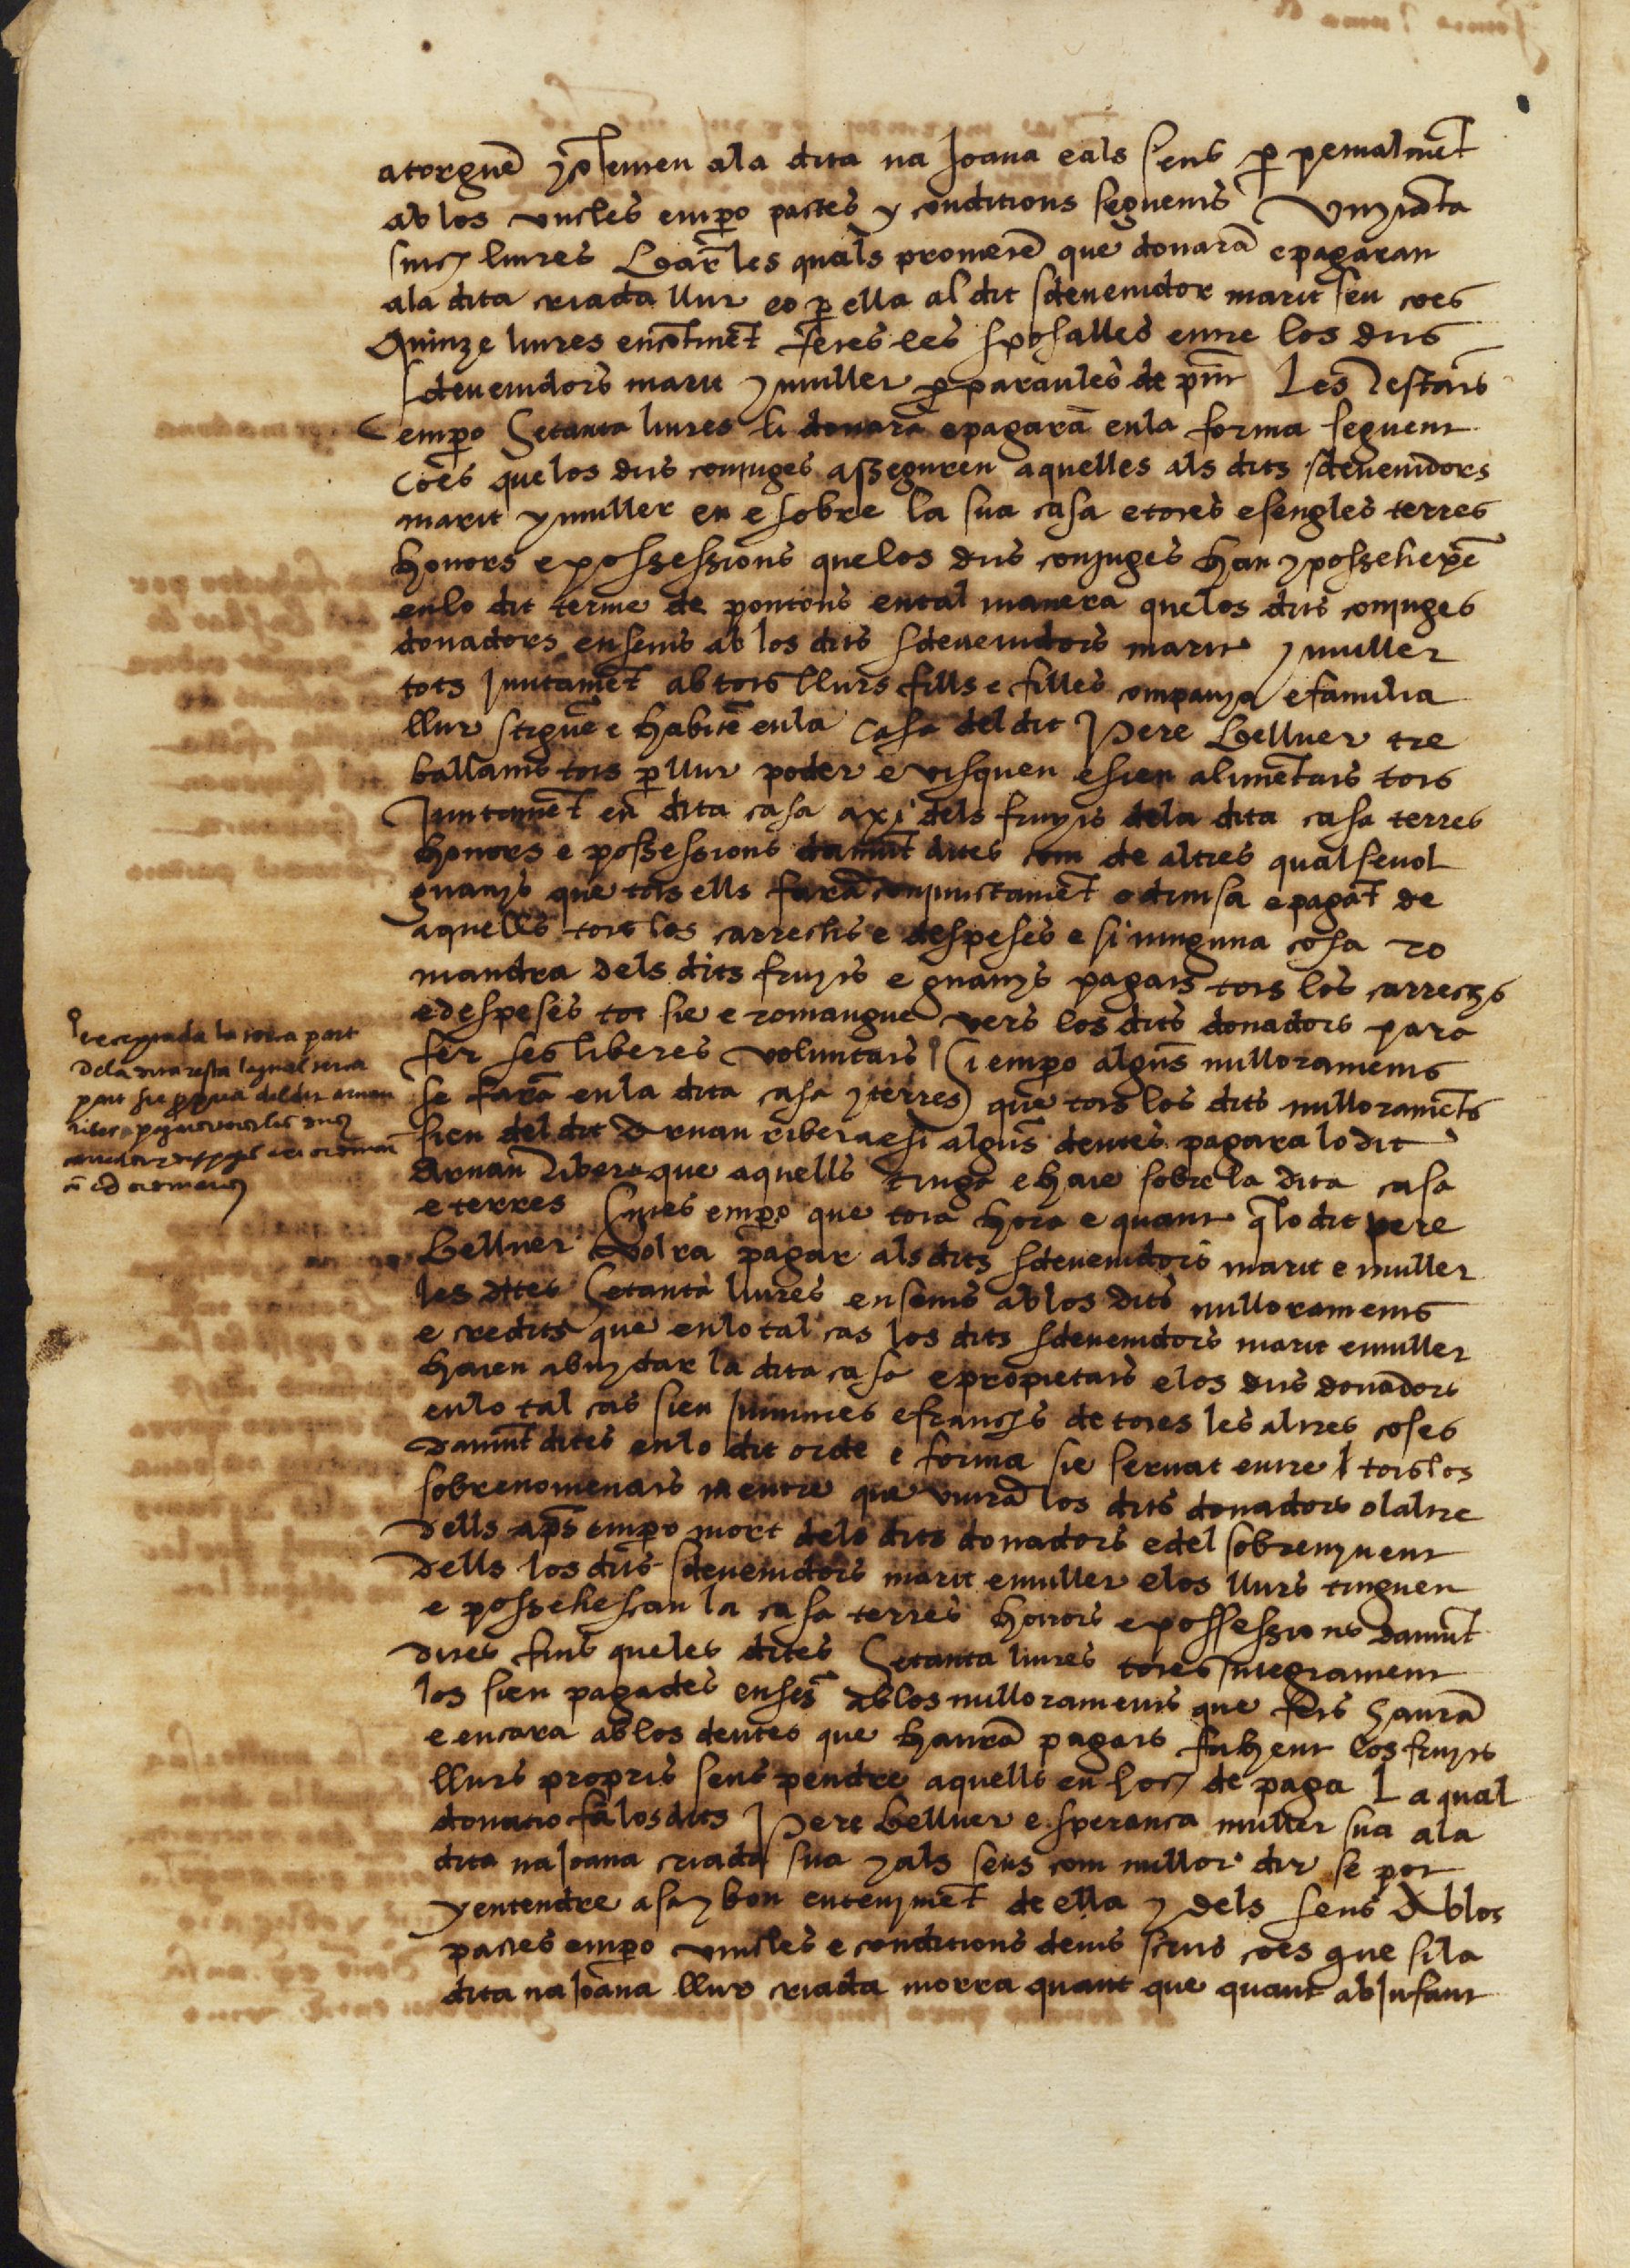 atorguē y cōſemen ala dita na Joana e als ſeus ꝑpetualmēt
ab los vincles emꝑo pactes y conditions seguents Vuytāta
sinch liures Bar̄ les quals prometē que donarā e pagaran
ala dita criada llur eo ꝑ ella al dit sdevenidor marit seu coes
Quinze liures encōtinēt fetes les sposalles entre los dits
sdevenidors marit y muller ꝑ paraules de pn̄t Les restāts
emꝑo Setanta liures li donarā e pagarā en la forma seguent
coēs que los dits conjuges asseguren aquelles als dits sdevenidors
marit y muller en e sobre la sua casa e totes e sengles terres
honors e possessions que los dits conjuges han y possehexē
en lo dit terme de pontons en tal manera que los dits conjuges
donadors ensems ab los dits sdevenidors marit y muller
tots juntamēt ab tots llurs fills e filles companya e familia
llur stiguē e habitē en la casa del dit Pere Bellver tre
ballants tots ꝑ llur poder e visquen e sien alimētats tots
Juntamēt en dita casa axi dels fruyts dela dita casa terres
honors e possessions damūt dites com de altres qualsevol
guanys que tots ells farā conjunctamēt o divisa e pagāt de
aquells tots los carrechs e despeses e si ninguna cosa ro
mandra dels dits fruyts e guanys pagats tots los carrechs
e despeses tot sie e romangue vers los dits donadors para
fer ses liberes voluntats Si emꝑo algūs milloraments
se farā en la dita casa y terres que tots los dits milloramēts
sien del dit Arnau ribera e si algūs deutes pagara lo dit
Arnau Ribera que aquells tinga e haie sobre la dita casa
e terres Entes emꝑo que tota hora e quant q̄ lo dit pere
Bellver volra pagar als dits sdevenidors marit e muller
les dites Setanta liures ensems ab los dits milloraments
e credits que en lo tal cas los dits sdevenidors marit e muller
haien abuydar la dita casa e propietats e los dits donadors
en lo tal cas sien immunes e franchs de totes les altres coses
damūt dites en lo dit orde e forma sie servat entre tots los
sobrenomenats mentre que viurā los dits donadors o laltre
dells ap̄s emꝑo mort dels dits donadors e del sobrevivent
dells los dits sdevenidors marit e muller e los llurs tinguen
e possehescan la casa terres honors e possessions damūt
dites fins que les dites Setanta liures totes integrament
los sien pagades ensēs ab los milloraments que fets haurā
e encara ab los deutes que haurā pagats fahent los fruyts
llurs propris sens pendre aquells en loch de paga La qual
donatio fā los dits Pere Bellver e sperança muller sua ala
dita na Joana criada sua y als seus com millor dir se pot
y entendre a sa y bon entenimēt de ella y dels seus Ab los
pactes emꝑo vincles e conditions devis scrits coes que si la
dita na Joana llur criada morra quant que quant ab Infant
exceptada la terça part
dela dita resta la qual terça
part sie ꝓpria del dit arnau